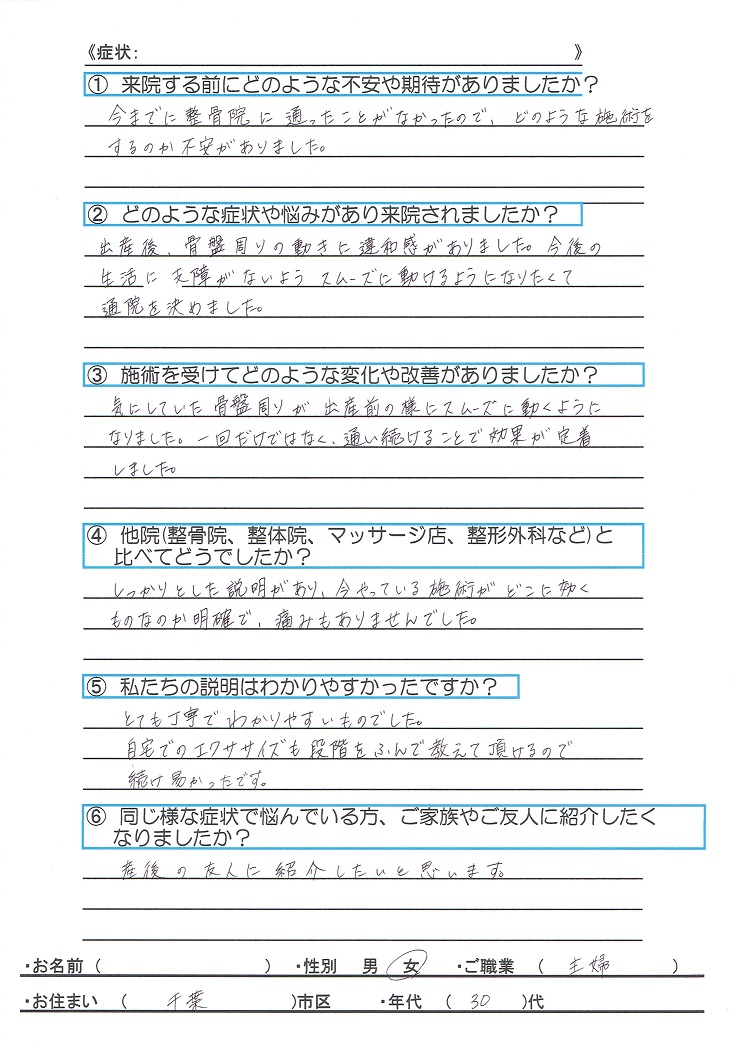 《症状: 》
① 来院する前にどのような不安や期待がありましたか？
今までに整骨院に通ったことがなかったので、どのような施術を
するのか不安がありました。
② どのような症状や悩みがあり来院されましたか？
出産後、骨盤周りの動きに違和感がありました。今後の
生活に支障がないようスムーズに動けるようになりたくて
通院を決めました。
③ 施術を受けてどのような変化や改善がありましたか？
気にしていた骨盤周りが出産前の様にスムーズに動くように
なりました。一回だけではなく、通い続けることで効果が定着
しました。
④ 他院(整骨院、整体院、マッサージ店、整形外科など)と
比べてどうでしたか？
しっかりとした説明があり、今やっている施術がどこに効く
ものなのか明確で、痛みもありませんでした。
⑤ 私たちの説明はわかりやすかったですか？
とても丁寧でわかりやすいものでした。
自宅でのエクササイズも段階をふんで教えて頂けるので
続け易かったです。
⑥ 同じ様な症状で悩んでいる方、ご家族やご友人に紹介したく
なりましたか？
産後の友人に紹介したいと思います。
・お名前 ( ) ・性別 男 女 ・ご職業 ( 主婦 )
・お住まい ( 千葉 )市区 ・年代 ( 30 )代